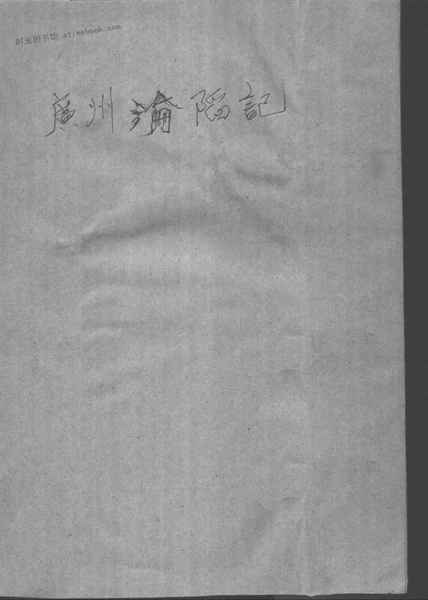 廣州淪陷記